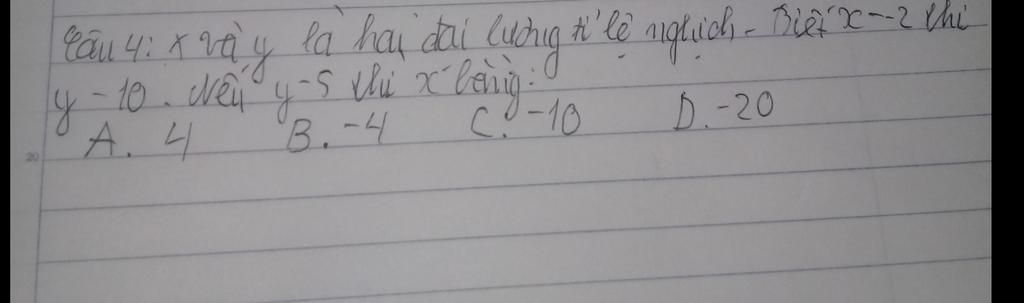 Câu 4: x và y là hai đại lường tỉ lệ nghịch - Biết x--2 thì
y -10. Nếu y-5 thì x bằng:
A. 4 B. -4 C. -10 D. -20
20